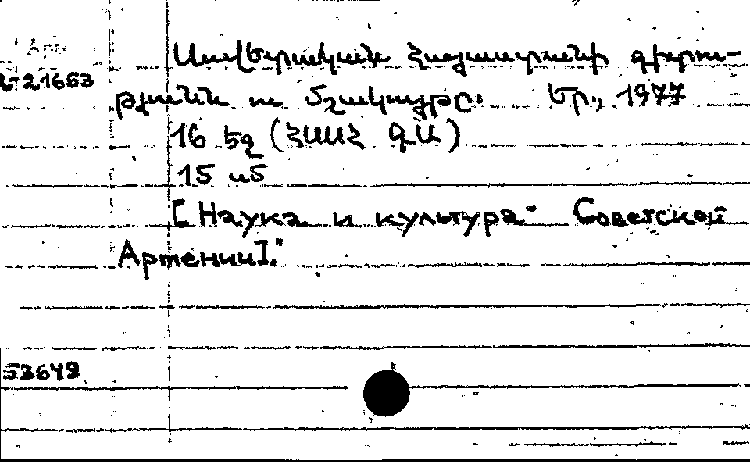 Арм.
2-21653
Սովետական Հայաստանի գիտու-
թյունն ու մշակույթը. Եր., 1977
16 էջ (ՀՍՍՀ ԳԱ)
15 սմ
[Наука и культура Советской
Армении].
53649